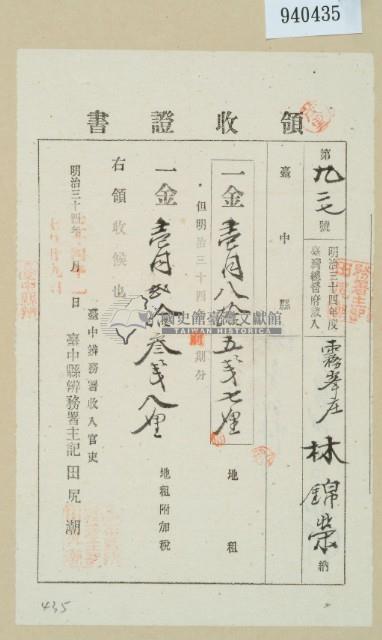 940435
領收證書
第九三七號
明治三十四年度
臺灣總督府歲入
霧峯庄 林錦榮 納
臺中縣
一金壹円八拾五戔七厘 地租
但明治三十四年 前 期分
一金壹円 拾叁戔八厘 地租附加稅
右領收候也
明治三十四年 月 日
臺中辨務署收入官吏
臺中縣辨務署主記田尻潮
國史館臺灣文獻館
TAIWAN HISTORICA
435